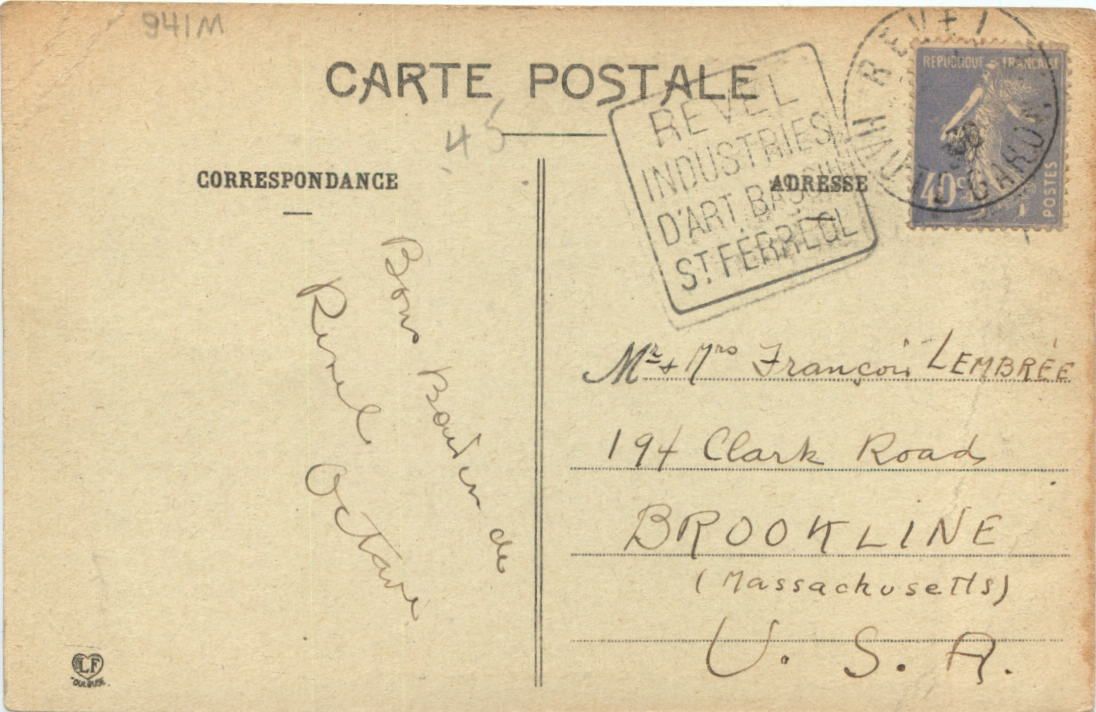 941M
CARTE POSTALE
45
CORRESPONDANCE
ADRESSE
REVEL
INDUSTRIES
D'ART BASSIN
ST FERREOL
REVEL
HAUTE GARONNE
REPUBLIQUE FRANCAISE
40c
POSTES
Bons Baisers de
Revel
Octave
Mr & Mrs François LEMBRÉE
194 Clark Road
BROOKLINE
(Massachusetts)
U. S. A.
LF
TOULOUSE